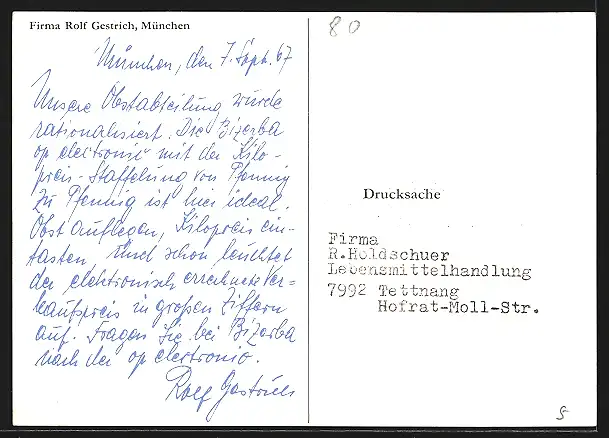 Firma Rolf Gestrich, München
München, den 7. Sept. 67
Unsere Obstabteilung wurde
rationalisiert. Die Bizerba
op electronic mit der Kilo-
preis-Staffelung von Pfennig
zu Pfennig ist hier ideal.
Obst auflegen, Kilopreis ein-
tasten. Und schon leuchtet
der elektronisch errechnete Ver-
kaufspreis in großen Ziffern
auf. Fragen Sie bei Bizerba
nach der op electronic.
Rolf Gestrich
80
Drucksache
Firma
R.Holdschuer
Lebensmittelhandlung
7992 Tettnang
Hofrat-Moll-Str.
5